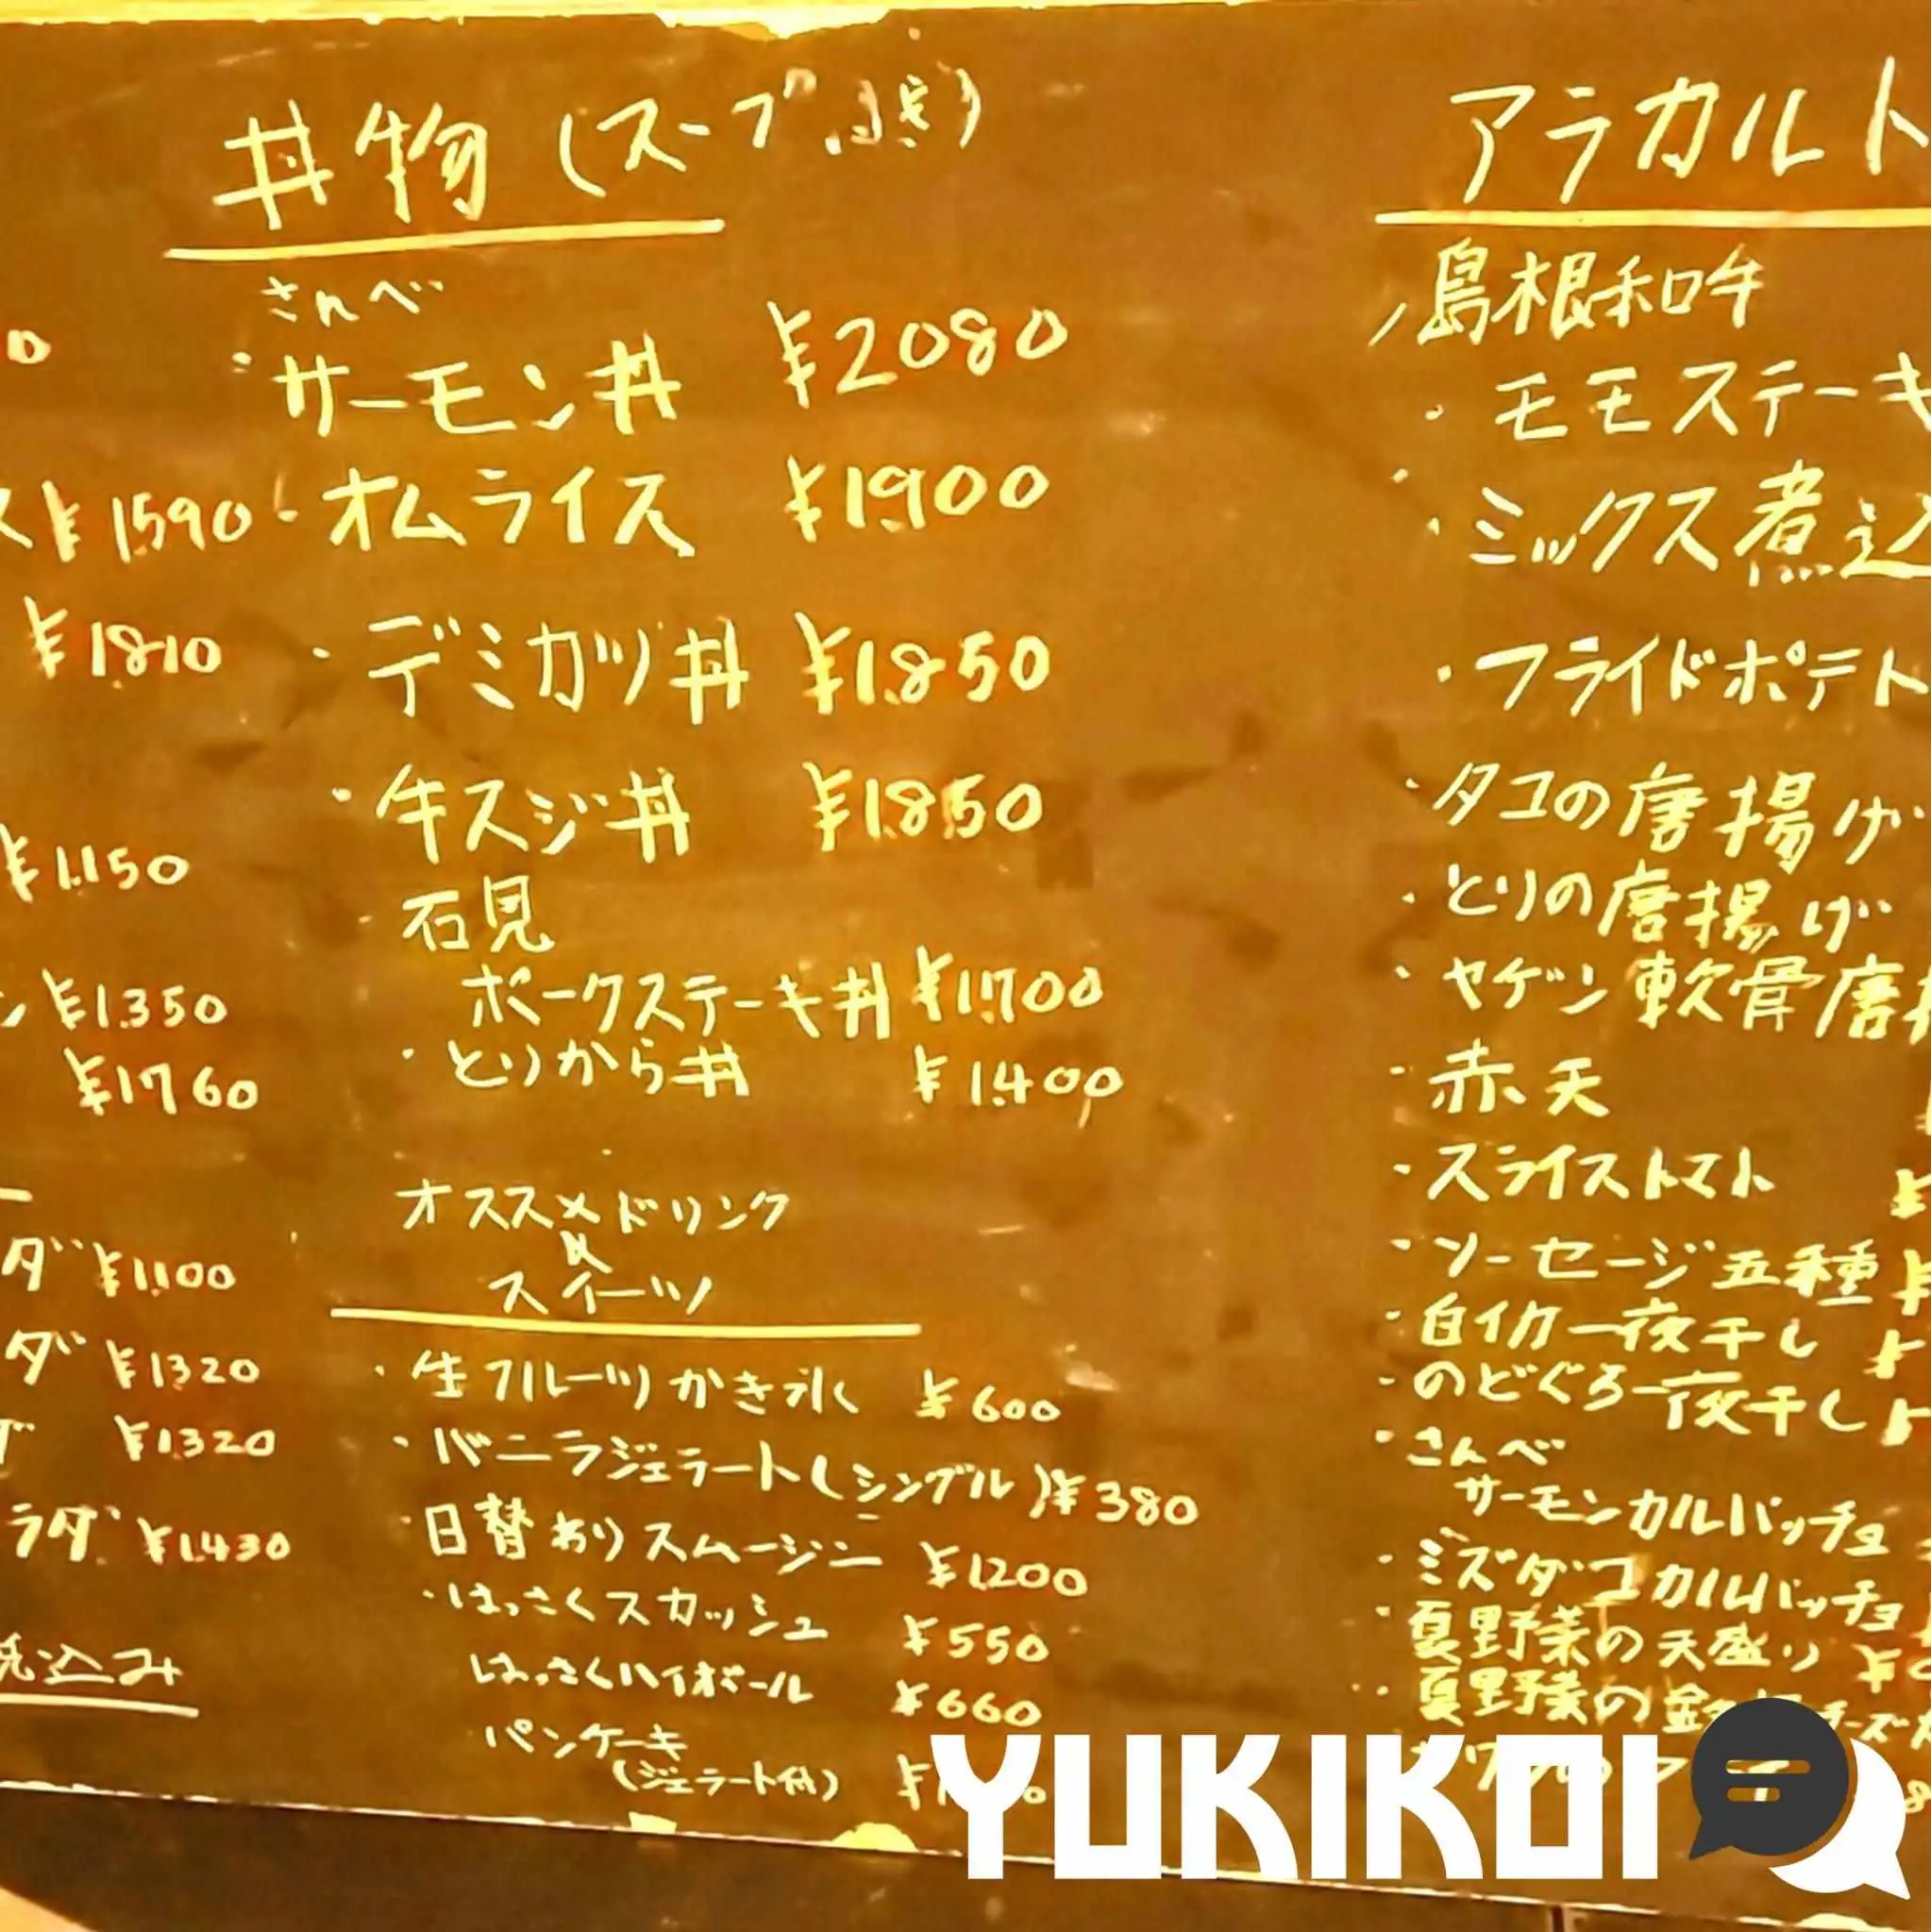 丼物(スープ付き)
さんべ
・サーモン丼 ¥2080
・オムライス ¥1,900
・デミカツ丼 ¥1,850
・牛スジ丼 ¥1,850
・石見
ポークステーキ丼 ¥1,700
・とりから丼 ¥1,400
オススメドリンク
&
スイーツ
・生フルーツかき氷 ¥600
・バニラジェラート(シングル)¥380
・日替わりスムージー ¥1,200
・はっさくスカッシュ ¥550
はっさくハイボール ¥660
パンケーキ
(ジェラート付)
ス¥1,590
¥1,810
¥1,150
ン¥1,350
¥1,760
ダ ¥1,100
ダ ¥1,320
¥1,320
ラダ ¥1,430
税込み
アラカルト
島根和牛
・モモステーキ
・ミックス煮込
・フライドポテト
・タコの唐揚げ
・とりの唐揚げ
・ヤゲン軟骨唐揚
・赤天
・スライストマト ¥
・ソーセージ五種 ¥
・白イカ一夜干し ¥
・のどぐろ一夜干し
・さんべ
サーモンカルパッチョ
・ミズダコカルパッチョ
・夏野菜の天盛り ¥
・夏野菜の チーズ
YUKIKOI